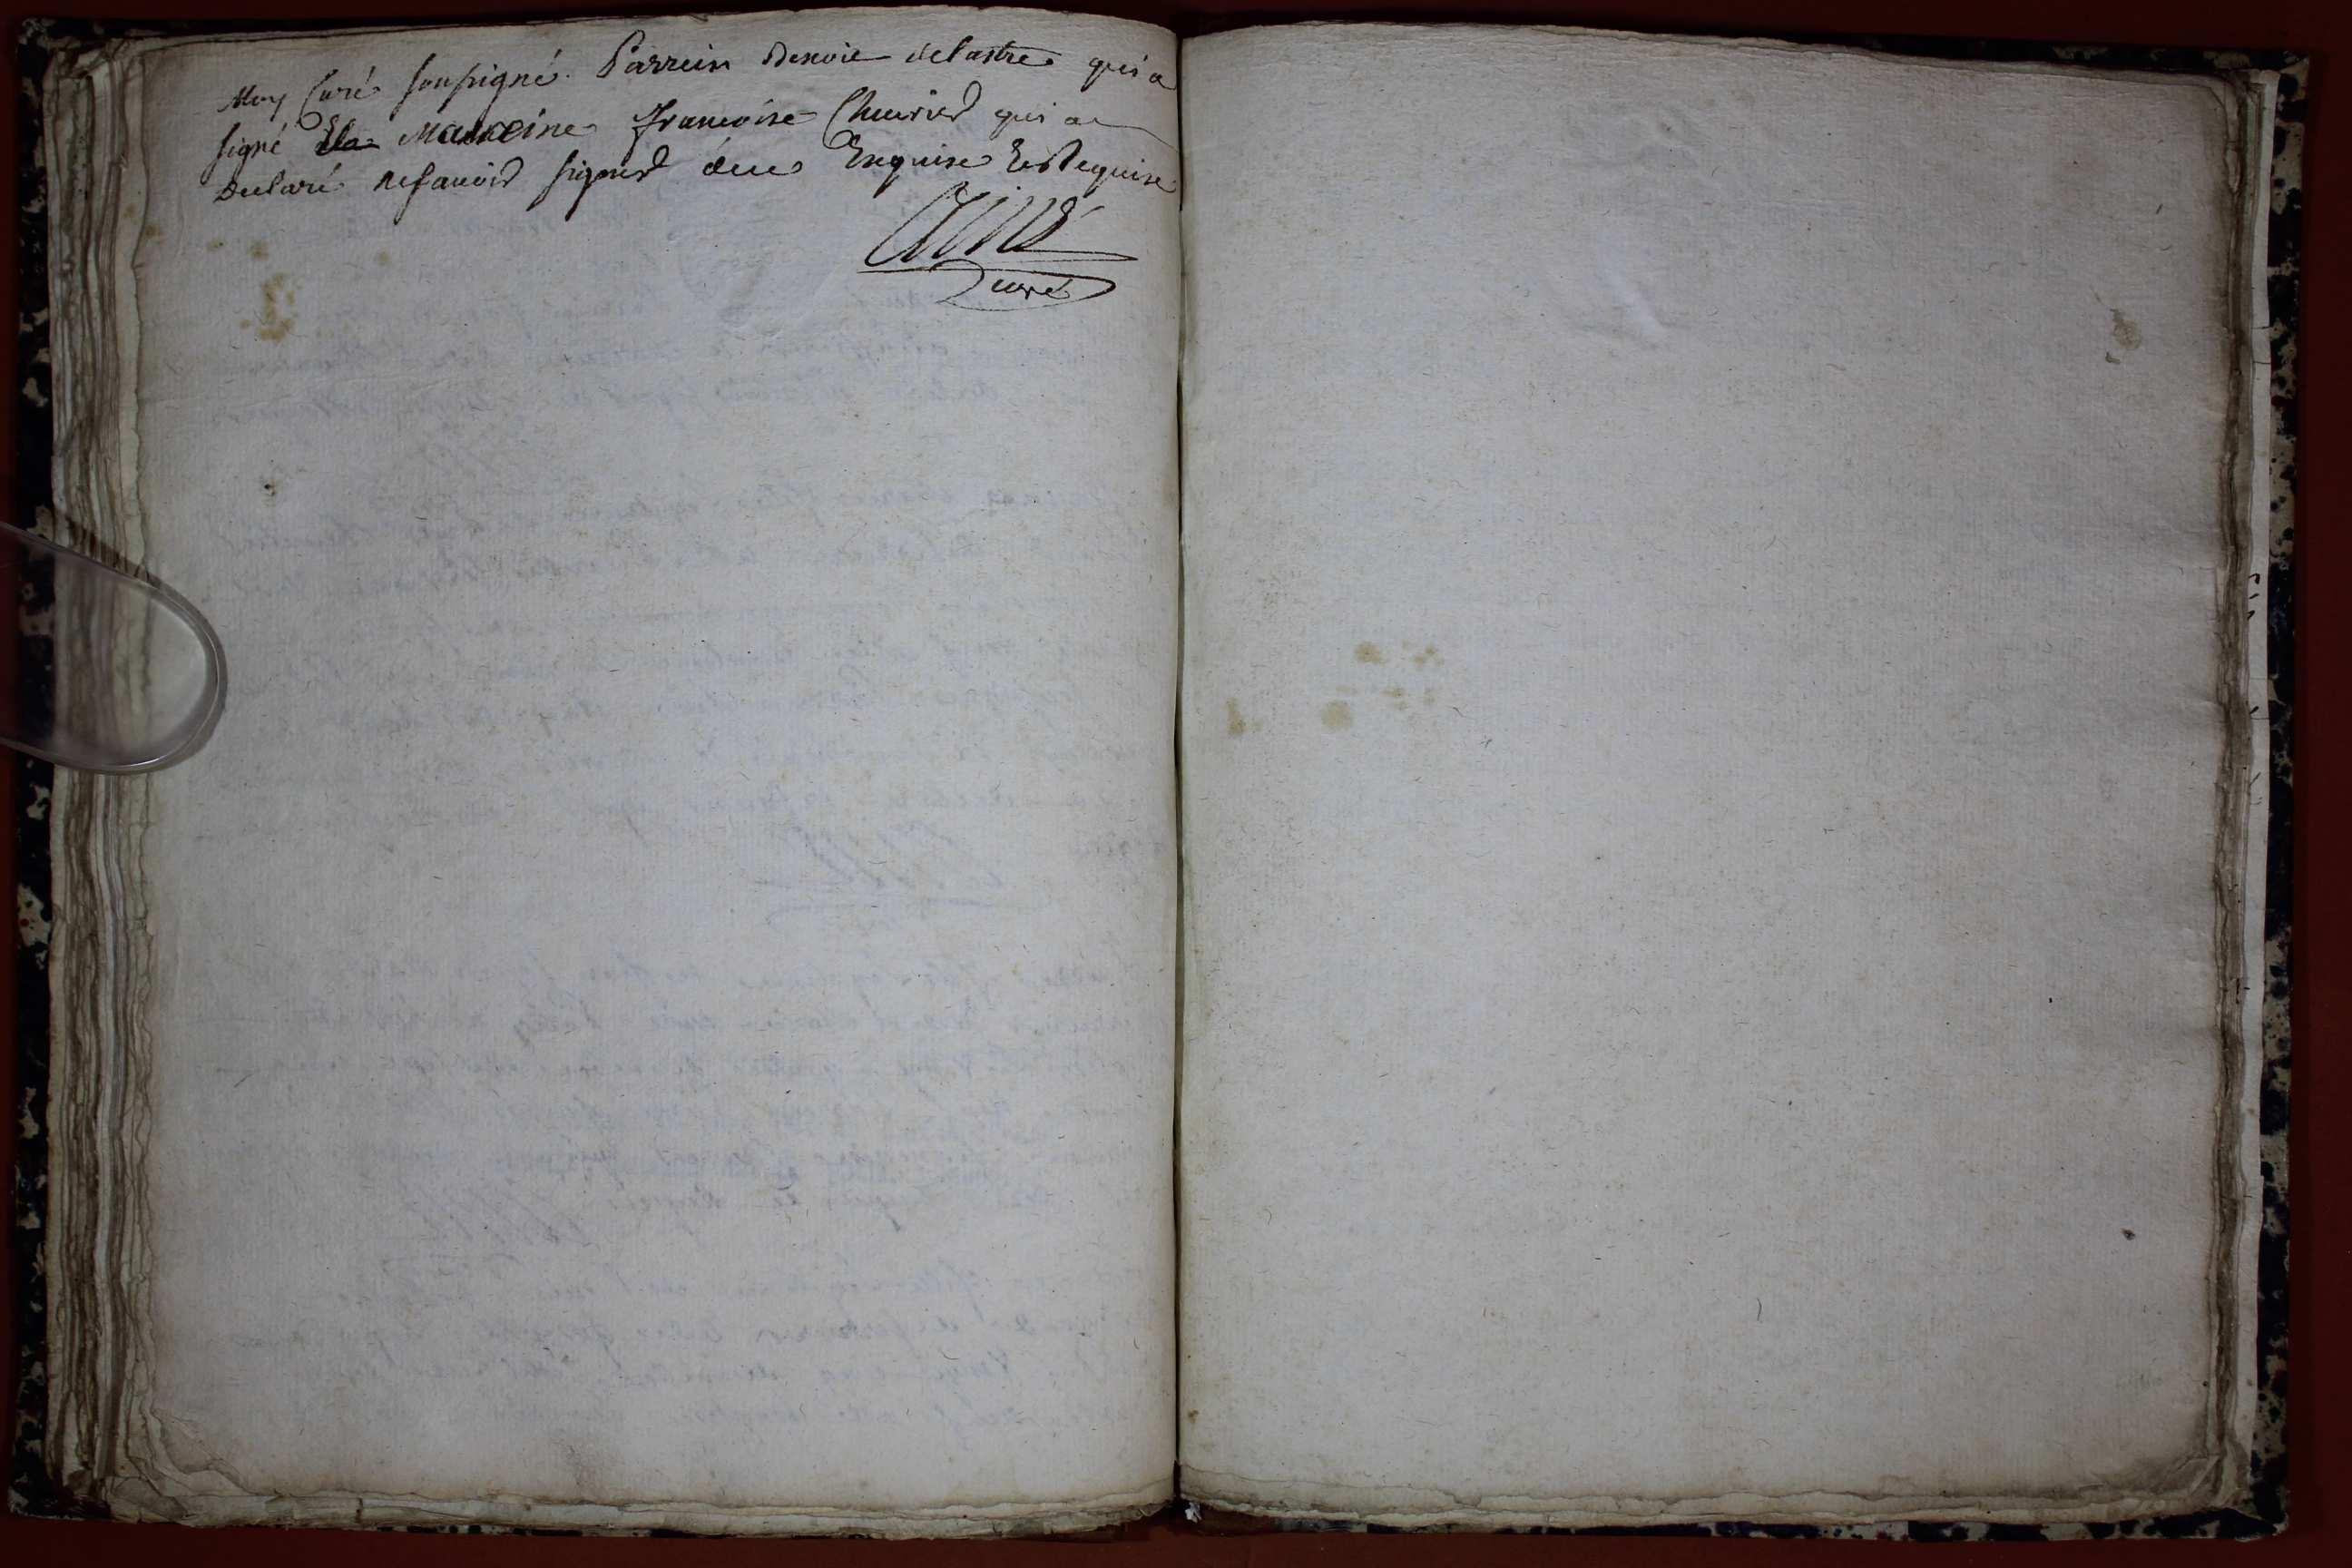 Moy Curé soussigné. Parrein Benoit delastre qui a
signé Et la Marreine francoise Chevrier qui a
declaré ne sauoir signer de ce Enquise Et Requise
curé